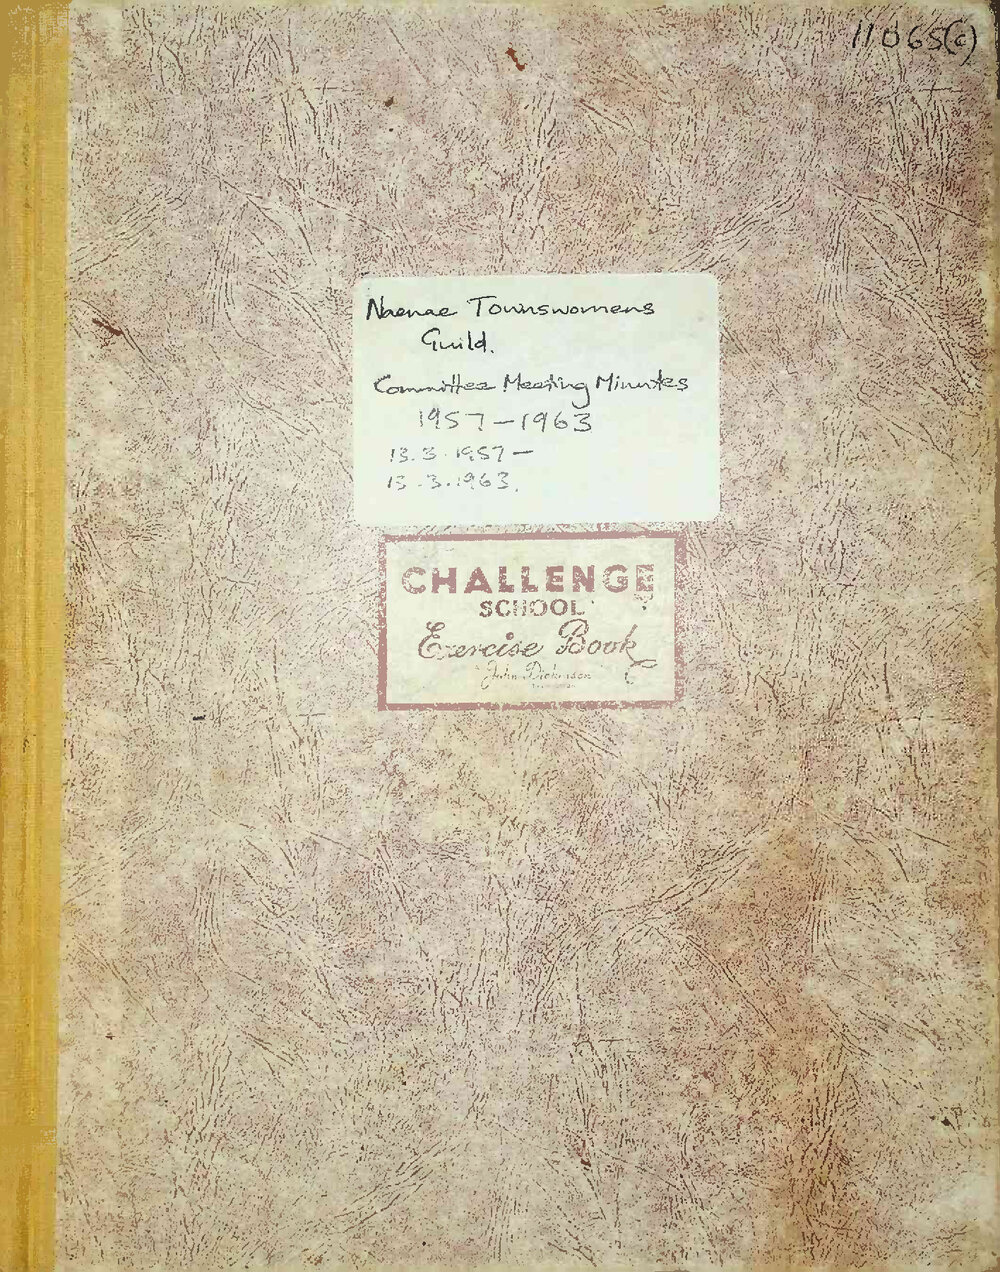 11065(c)
Naenae Townswomens
Guild.
Committee Meeting Minutes
1957-1963
13.3.1957-
13.3.1963.
CHALLENGE
SCHOOL
Exercise Book
John Dickinson